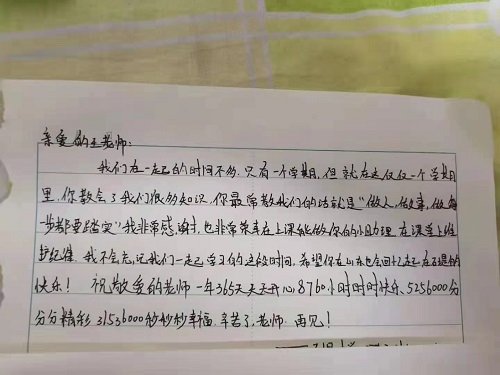 亲爱的王老师:
我们在一起的时间不多,只有一个学期,但就在这仅仅一个学期
里,你教会了我们很多知识,你最常教我们的话就是“做人、做事,做每
一步都要踏实”我非常感谢,也非常荣幸在上课能做你的小助理,在课堂上维
护纪律,我不会忘记我们一起学习的这段时间,希望你在以后也会回忆起在
快乐!祝敬爱的老师一年365天天天开心,8760小时时时快乐、5256000分
分分精彩,31536000秒秒秒幸福,辛苦了,老师,再见!